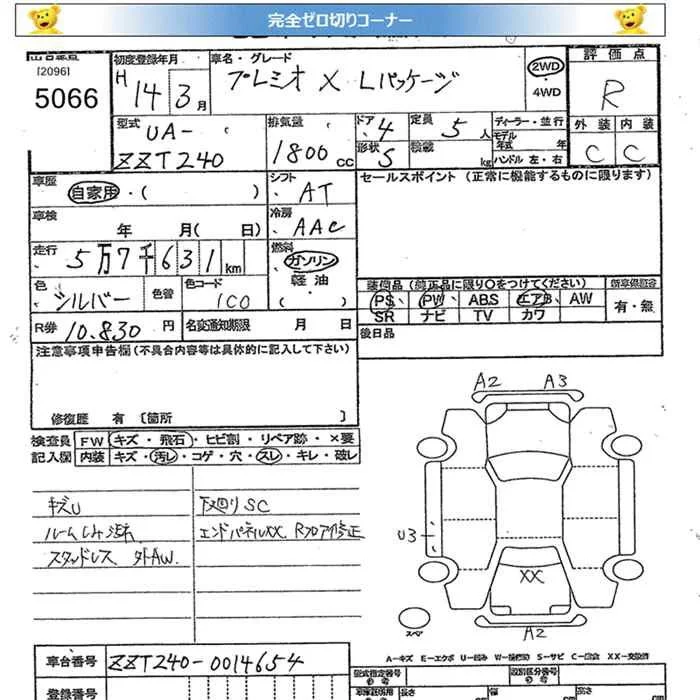 完全ゼロ切りコーナー
[2096]
5066
初度登録年月
H 14年 3月
車名・グレード
プレミオ X Lパッケージ
2WD
・4WD
評価点
R
外装 内装
C C
型式
UA-
ZZT240
排気量
1800 cc
ドア
4
形状
S
定員
5人
積載
kg
ディーラー・並行
モデル年式 年
ハンドル 左・右
車歴
自家用・( )
シフト
AT
セールスポイント (正常に機能するものに限ります)
車検
年 月( 日)
冷房
AAC
走行
5万7千631km
燃料
ガソリン
軽油
( )
色
シルバー
色替
色コード
1C0
装備品 (純正品に限り○をつけてください)
PS PW ABS エアB AW
SR ナビ TV カワ
新車保証書
有・無
R券 10.830円
名変通知期限 月 日
後日品
注意事項申告欄(不具合内容等は具体的に記入して下さい)
修復歴 有 〔箇所 〕
検査員 FW キズ・飛石・ヒビ割・リペア跡・×要
記入欄 内装 キズ・汚レ・コゲ・穴・スレ・キレ・破レ
キズU
ルームシミ 汚れ
スタッドレス 外AW.
下廻りSC
エンドパネルXX. Rフロア修正
A2 A3
U3
XX
A2
スペア
A-キズ E-エクボ U-凹み W-補修跡 S-サビ C-腐食 XX-交換済
車台番号 ZZT240-0014654
登録番号
型式指定番号
参考
類別区分番号
参考
長さ
幅
高さ